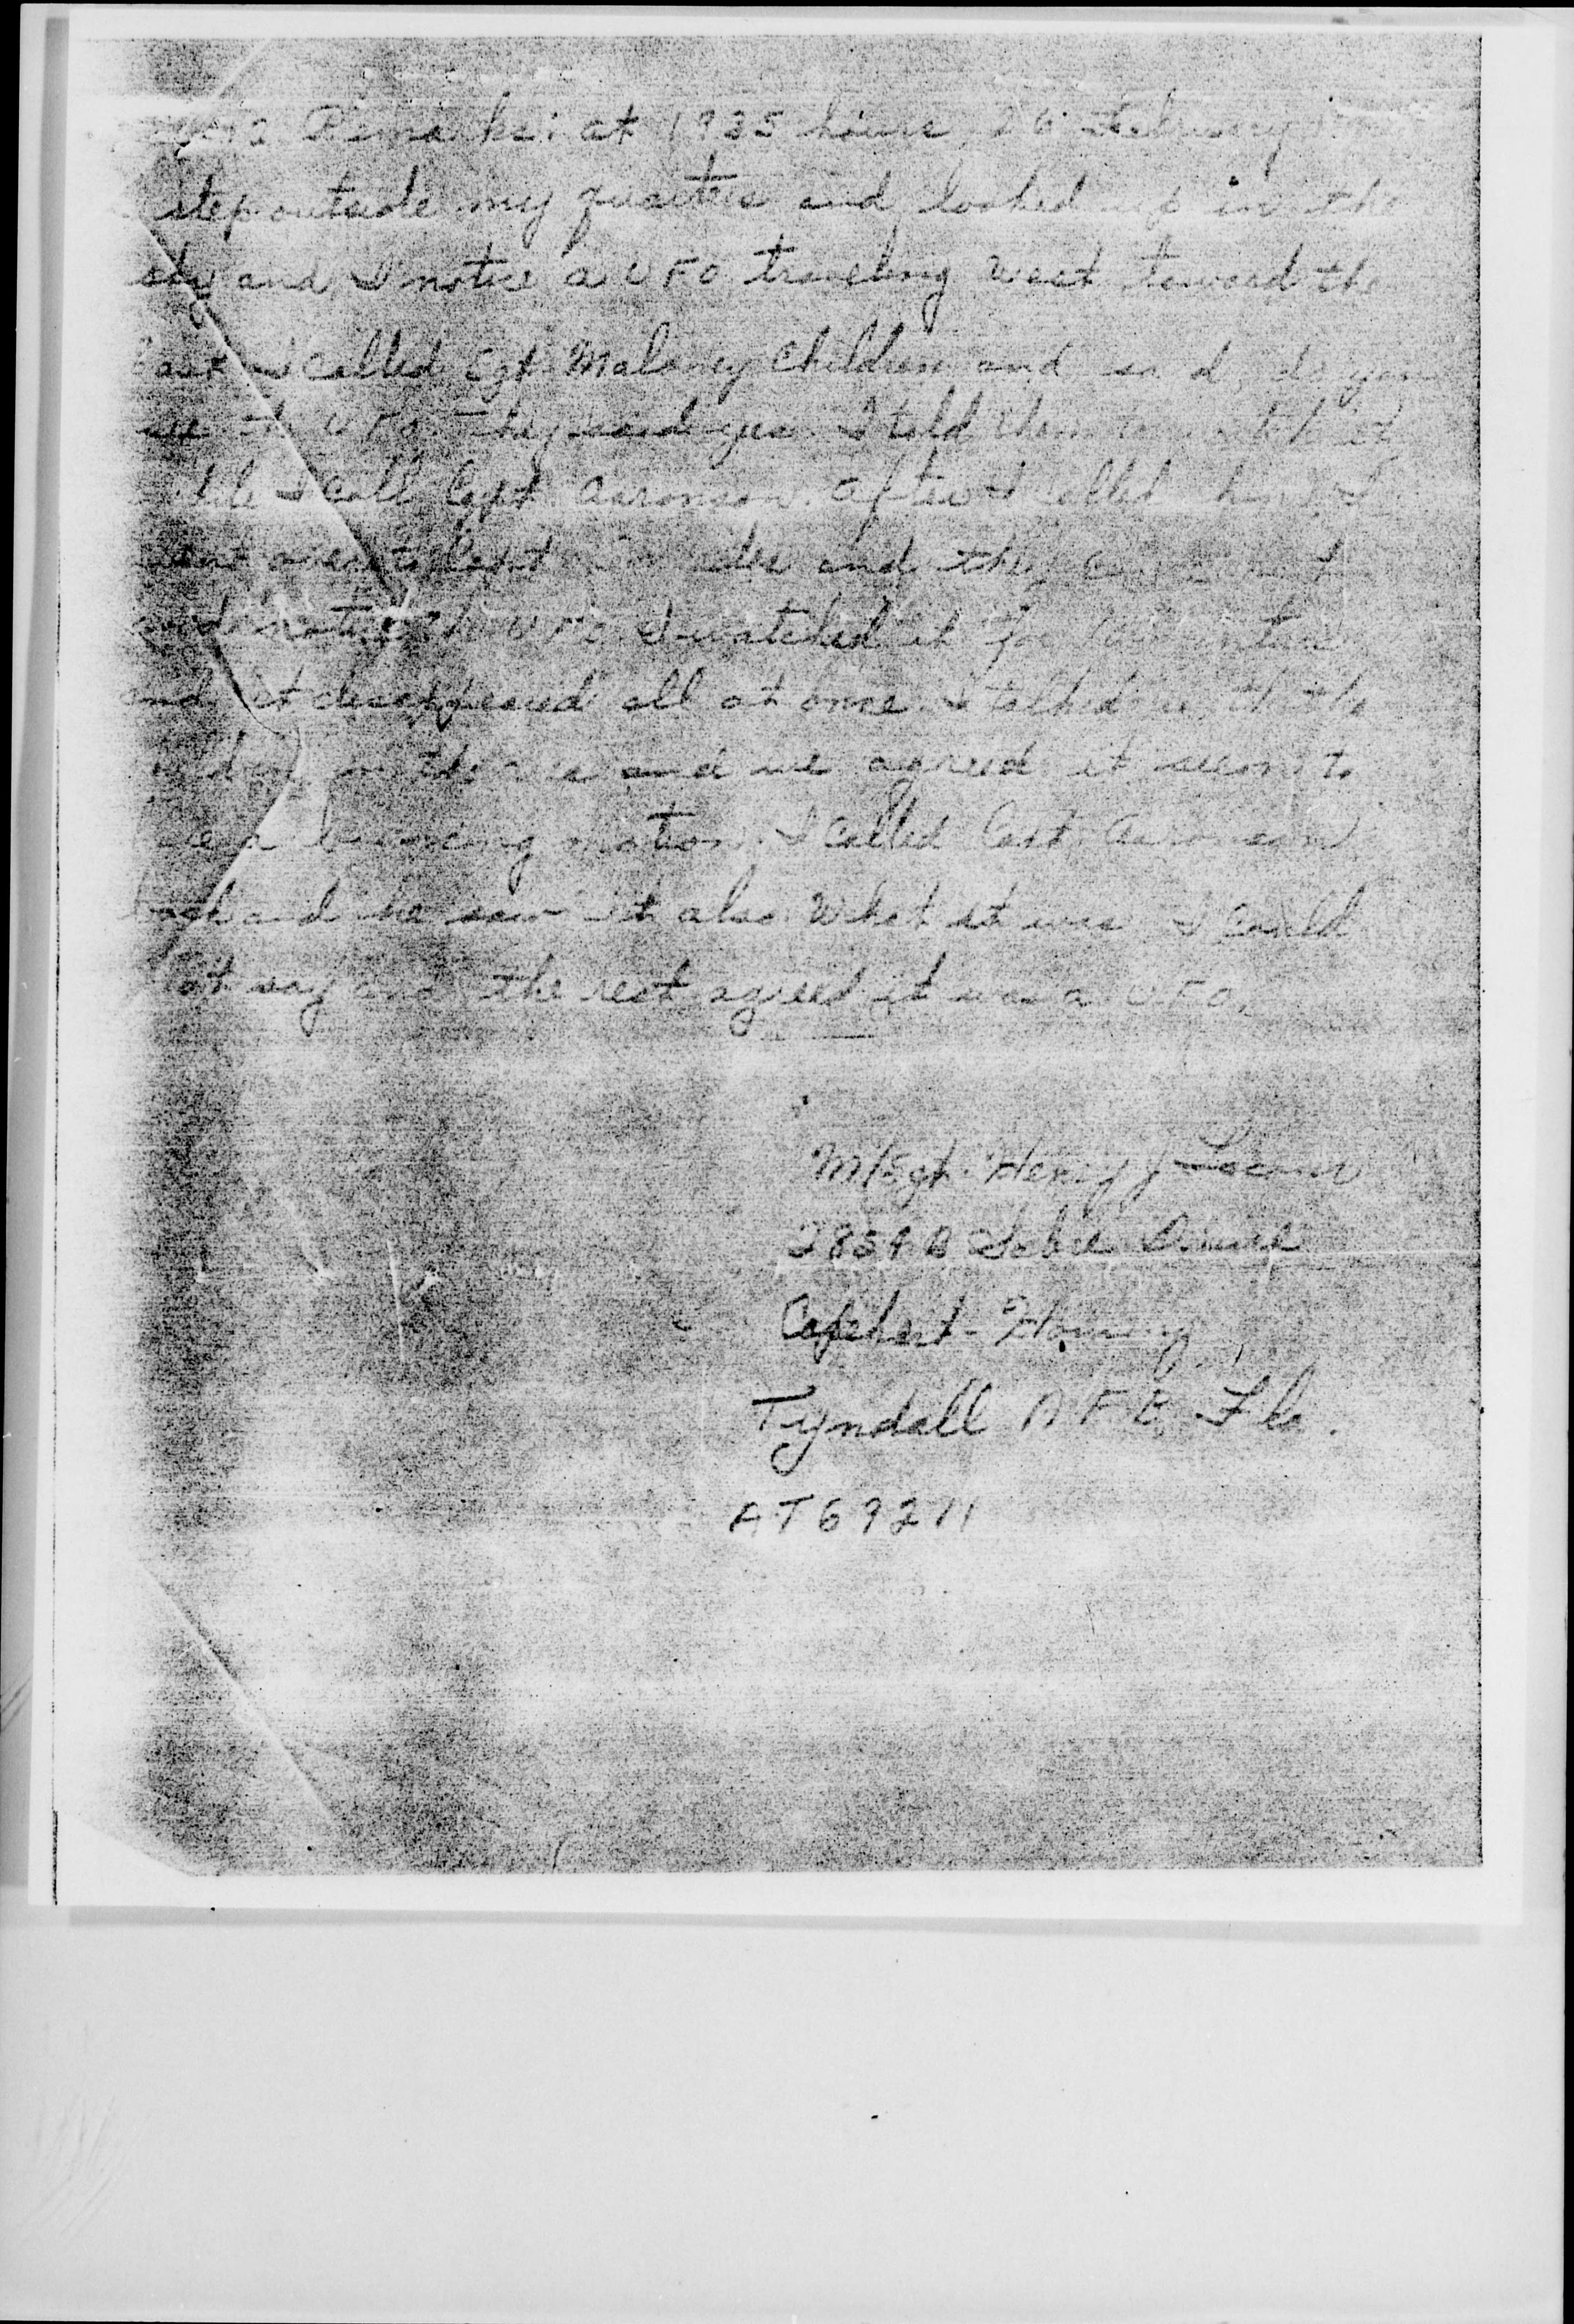 Remarks: at 1935 hours 26 February
step outside my quarters and looked up in the
sky and I notice a UFO traveling West toward the
East I called Sgt Maloney Children and said, do you
see the UFO. They said yes. I told them to watch it
while I call Capt Aaronson. After I called him I
went over and they
notice the UFO I watched it for 10 minutes
and it disappeared all at once. I talked with the
and we agreed it seem to
be a bouncing motion. I called Capt. Aaronson
back and he saw it also. What it was I could
not say and the rest agreed it was a UFO.
M/Sgt. Henry J
Drive
Capehart-Housing
Tyndall AFB, Fla.
AT69211